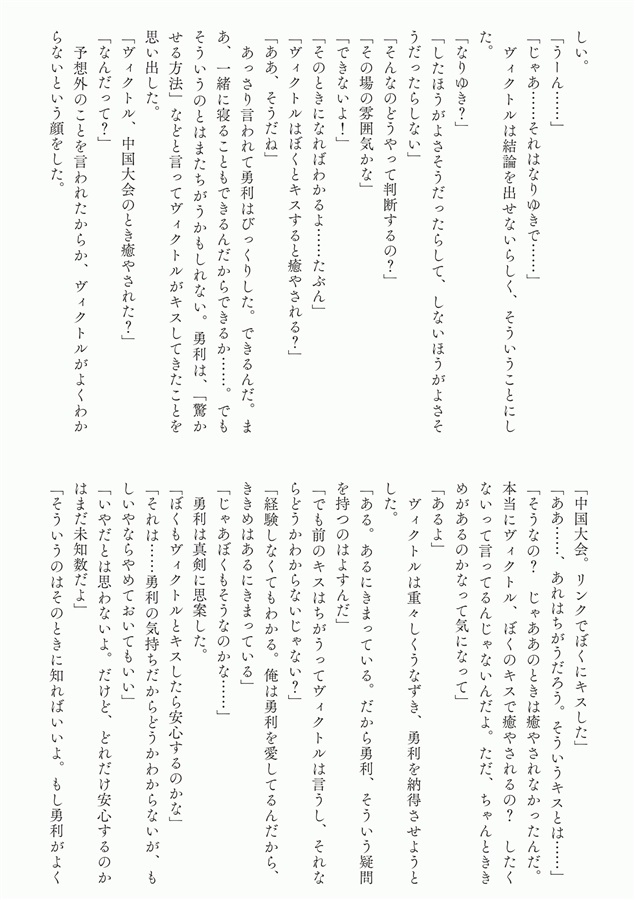 しい。
「うーん……」
「じゃあ……それはなりゆきで……」
　ヴィクトルは結論を出せないらしく、そういうことにし
た。
「なりゆき？」
「したほうがよさそうだったらして、しないほうがよさそ
うだったらしない」
「そんなのどうやって判断するの？」
「その場の雰囲気かな」
「できないよ！」
「そのときになればわかるよ……たぶん」
「ヴィクトルはぼくとキスすると癒やされる？」
「ああ、そうだね」
　あっさり言われて勇利はびっくりした。できるんだ。ま
あ、一緒に寝ることもできるんだからできるか……。でも
そういうのとはまたちがうかもしれない。勇利は、「驚か
せる方法」などと言ってヴィクトルがキスしてきたことを
思い出した。
「ヴィクトル、中国大会のとき癒やされた？」
「なんだって？」
　予想外のことを言われたからか、ヴィクトルがよくわか
らないという顔をした。
「中国大会。リンクでぼくにキスした」
「ああ……、あれはちがうだろう。そういうキスとは……」
「そうなの？　じゃああのときは癒やされなかったんだ。
本当にヴィクトル、ぼくのキスで癒やされるの？　したく
ないって言ってるんじゃないんだよ。ただ、ちゃんときき
めがあるのかなって気になって」
「あるよ」
　ヴィクトルは重々しくうなずき、勇利を納得させようと
した。
「ある。あるにきまっている。だから勇利、そういう疑問
を持つのはよすんだ」
「でも前のキスはちがうってヴィクトルは言うし、それな
らどうかわからないじゃない？」
「経験しなくてもわかる。俺は勇利を愛してるんだから、
ききめはあるにきまっている」
「じゃあぼくもそうなのかな……」
　勇利は真剣に思案した。
「ぼくもヴィクトルとキスしたら安心するのかな」
「それは……勇利の気持ちだからどうかわからないが、も
しいやならやめておいてもいい」
「いやだとは思わないよ。だけど、どれだけ安心するのか
はまだ未知数だよ」
「そういうのはそのときに知ればいいよ。もし勇利がよく